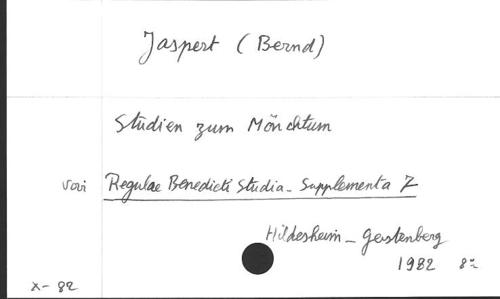 Jaspert (Bernd)
Studien zum Mönchtum
voir Regulae Benedicti Studia - Supplementa 7
Hildesheim - Gerstenberg
1982 8°
X - 82